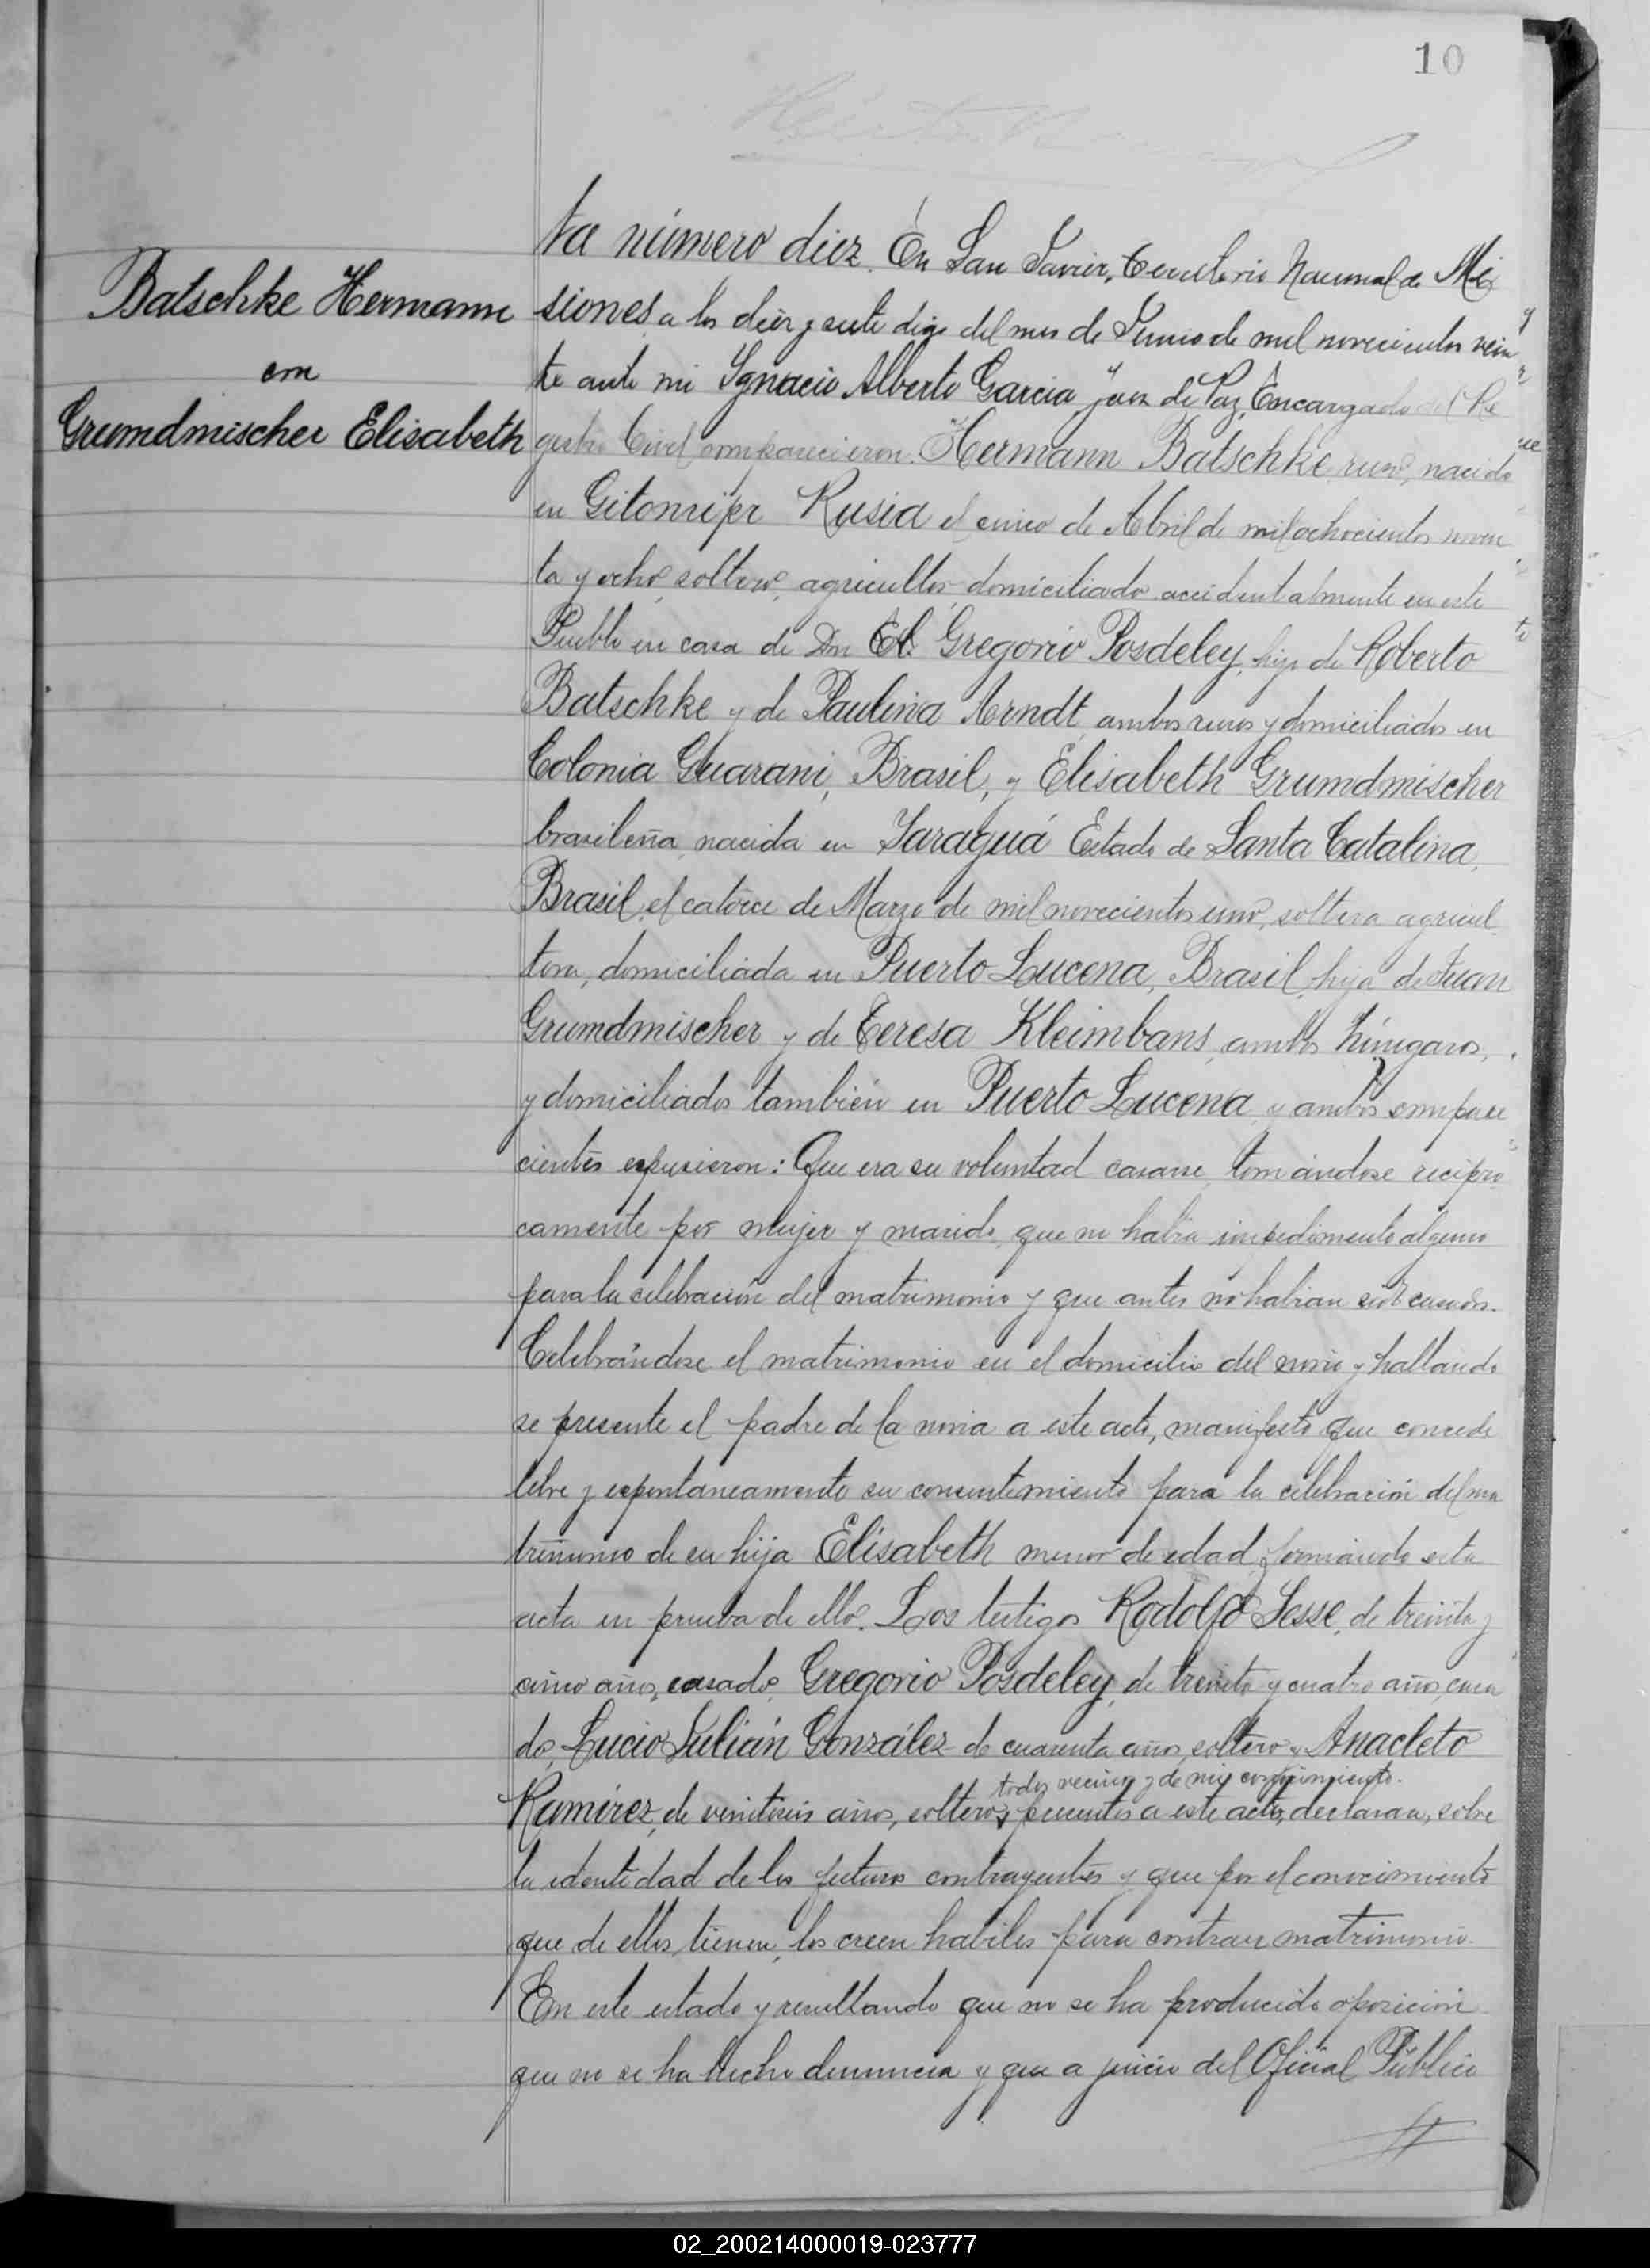 10
Batschke Hermann
con
Grumdmischer Elisabeth
ta número diez. En San Javier, Territorio Nacional de Mi
siones a los diez y siete dias del mes de Junio de mil novecientos vein
te ante mi Ignacio Alberto Garcia Juez de Paz, Encargado del Re
gistro Civil comparecieron. Hermann Batschke, ruso, nacido
en Gitomijer Rusia el cinco de Abril de mil ochocientos noven
ta y ocho, soltero, agricultor domiciliado accidentalmente en este
Pueblo en casa de Dn Gregorio Posdeley, hijo de Roberto
Batschke y de Paulina Arndt, ambos rusos y domiciliados en
Colonia Guarani, Brasil, y Elisabeth Grumdmischer
brasileña nacida en Jaraguá Estado de Santa Catalina,
Brasil, el catorce de Marzo de mil novecientos uno, soltera agricul
tora, domiciliada en Puerto Lucena, Brasil, hija de Juan
Grumdmischer y de Teresa Kleimbans, ambos húngaros,
y domiciliados también en Puerto Lucena, y ambos compare
cientes expusieron: Que era su voluntad casarse, tomándose recipro
camente por mujer y marido, que no habia impedimento alguno
para la celebración del matrimonio y que antes no habian sido casados.
Celebrándose el matrimonio en el domicilio del novio y hallando
se presente el padre de la novia a este acto, manifestó que concede
libre y espontaneamente su consentimiento para la celebración del ma
trimonio de su hija Elisabeth menor de edad, firmando esta
acta en prueba de ello. Los testigos Rodolfo Sesse, de treinta y
cinco años, casado, Gregorio Posdeley, de treinta y cuatro años, casa
do, Lucio Julián González de cuarenta años, soltero y Anacleto
todos vecinos y de mi conocimiento.
Ramírez, de veintiseis años, soltero, presentes a este acto, declaran, sobre
la identidad de los futuros contrayentes y que por el conocimiento
que de ellos tienen, los creen habiles para contraer matrimonio.
En este estado y resultando que no se ha producido oposición
que no se ha hecho denuncia y que a juicio del Oficial Público
02_200214000019-023777